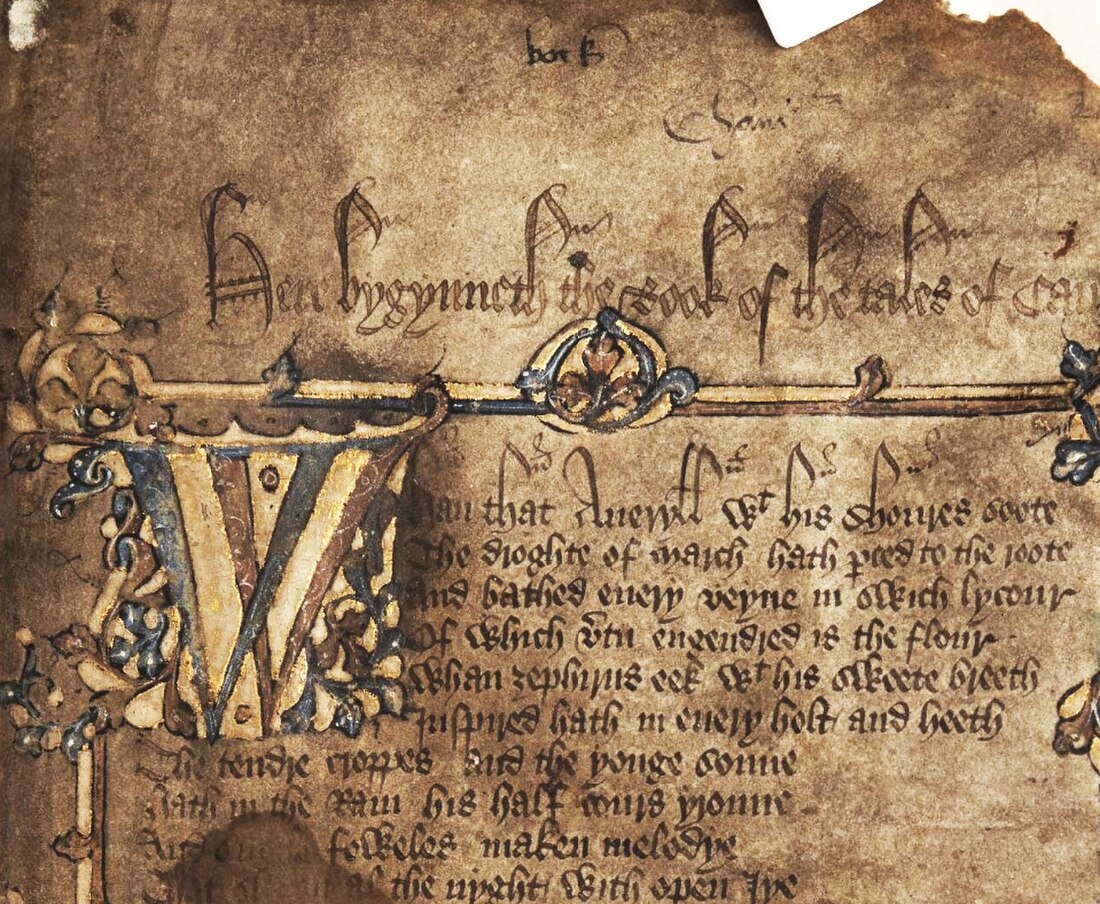 Here bygynneth the Book of the tales of Cau
Whan that Aueryll wt his shoures soote
The droghte of March hath pced to the roote
And bathed euery veyne in swich lycour
Of which vtu engendred is the flour
Whan zephirus eek wt his sweete breeth
Inspired hath in euery holt and heeth
The tendre croppes and the yonge sonne
Hath in the Ram his half cours yronne
And foweles maken melodye
al the nyght with open Iye